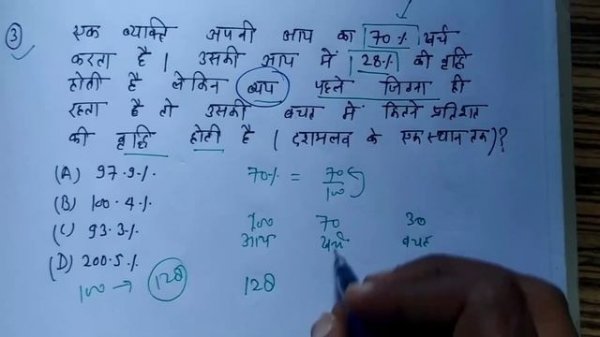 ③ एक व्यक्ति अपनी आय का 70% खर्च
करता है। उसकी आय में 28% की वृद्धि
होती है लेकिन व्यय पहले जितना ही
रहता है तो उसकी बचत में कितने प्रतिशत
की वृद्धि होती है (दशमलव के एक स्थान तक)?
(A) 97.9%
70% = 70/100
(B) 100.4%
(C) 93.3%
100 70 30
आय खर्च बचत
(D) 200.5%
100 → 128
128